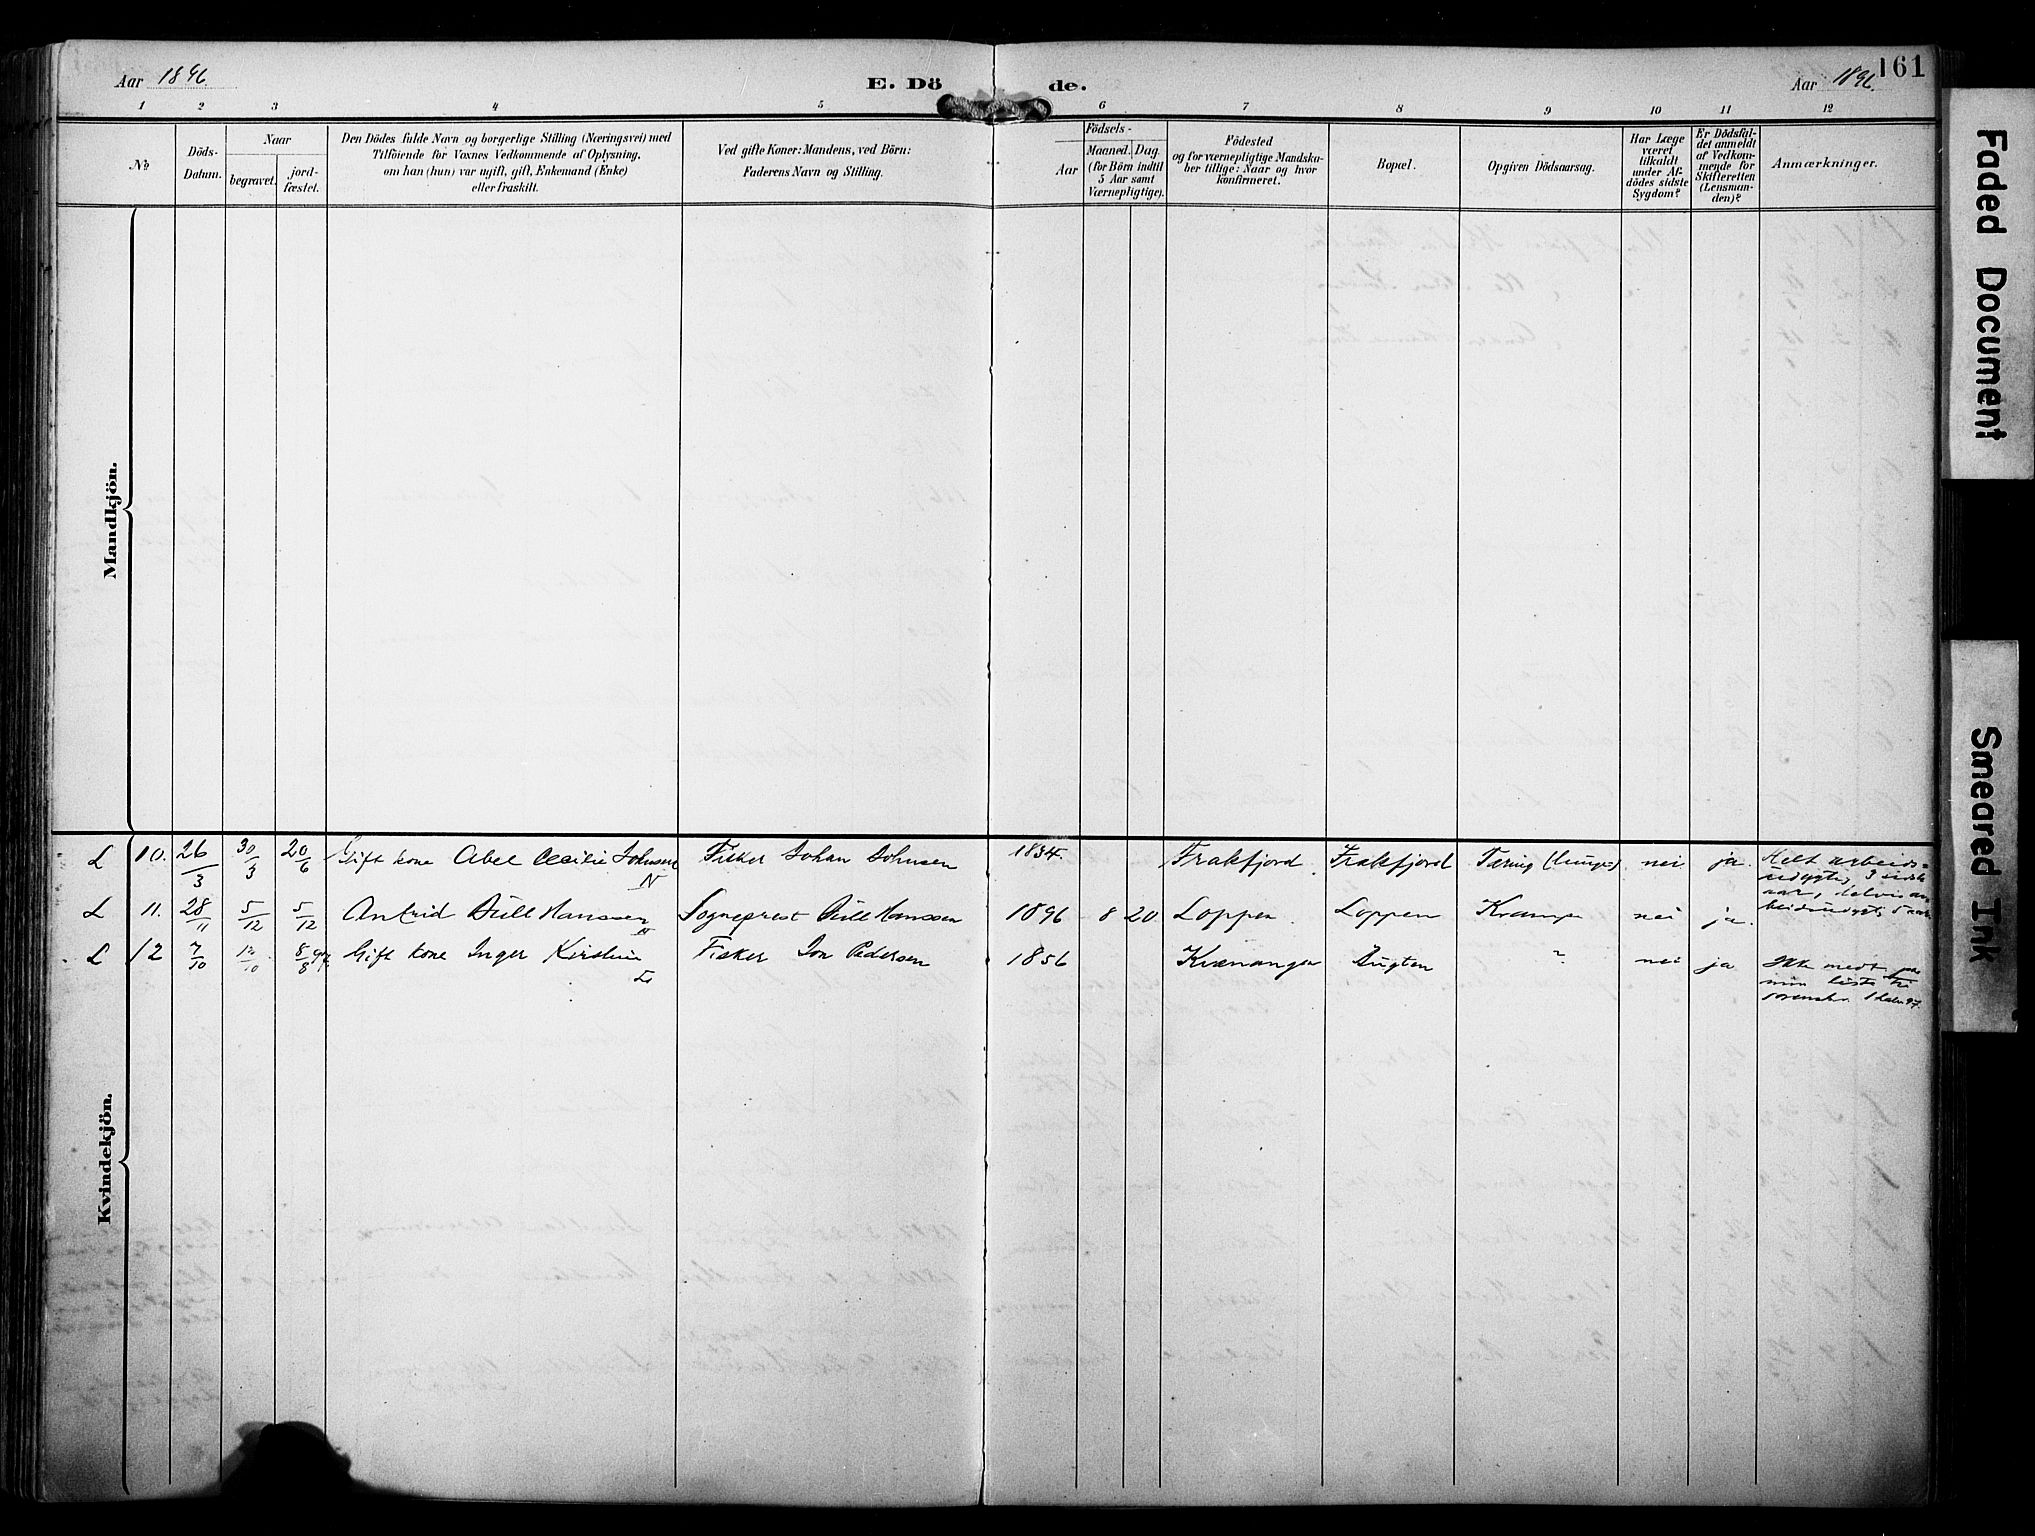 Aar 1896
E. Dö de.
Aar 1896.
161
1 2 3 4 5 6 7 8 9 10 11 12
No
Döds-
Datum.
Naar
begravet.
jord-
fæstet.
Den Dödes fulde Navn og borgerlige Stilling (Næringsvei) med
Tilföiende for Voxnes Vedkommende af Oplysning,
om han (hun) var ugift, gift, Enkemand (Enke)
eller fraskilt.
Ved gifte Koner: Mandens, ved Börn:
Faderens Navn og Stilling.
Födsels-
Aar
Maaned. Dag.
(for Börn indtil
5 Aar samt
Værnepligtige).
Födested
og for værnepligtige Mandska-
ber tillige: Naar og hvor
konfirmeret.
Bopæl.
Opgiven Dödsaarsag.
Har Læge
været
tilkaldt
under Af-
dödes sidste
Sygdom?
Er Dödsfal-
det anmeldt
af Vedkom-
mende for
Skifteretten
(Lensman-
den)?
Anmærkninger.
Mandkjön.
Kvindekjön.
L 10. 26/3 30/3 20/6 Gift kone Abel Cecilie Johnsen N Fisker Johan Johnsen 1834. Frakfjord Frakfjord Tæring (lunge) nei ja. Helt arbeids-
udygtig 3 sidste
aar, delvis ar-
beidsudygt. 5 aar
L 11. 28/11 5/12 5/12 Astrid Bull Hanssen N Sogneprest Bull Hanssen 1896 8 20 Loppen Loppen Krampe nei ja.
L 12 7/10 10/10 8/8 97 Gift kone Inger Kirstine Fisker Jon Pedersen 1856 Kvænangen nei ja Ikke medt. paa
min liste til
sorenskr.
Faded Document
Smeared Ink